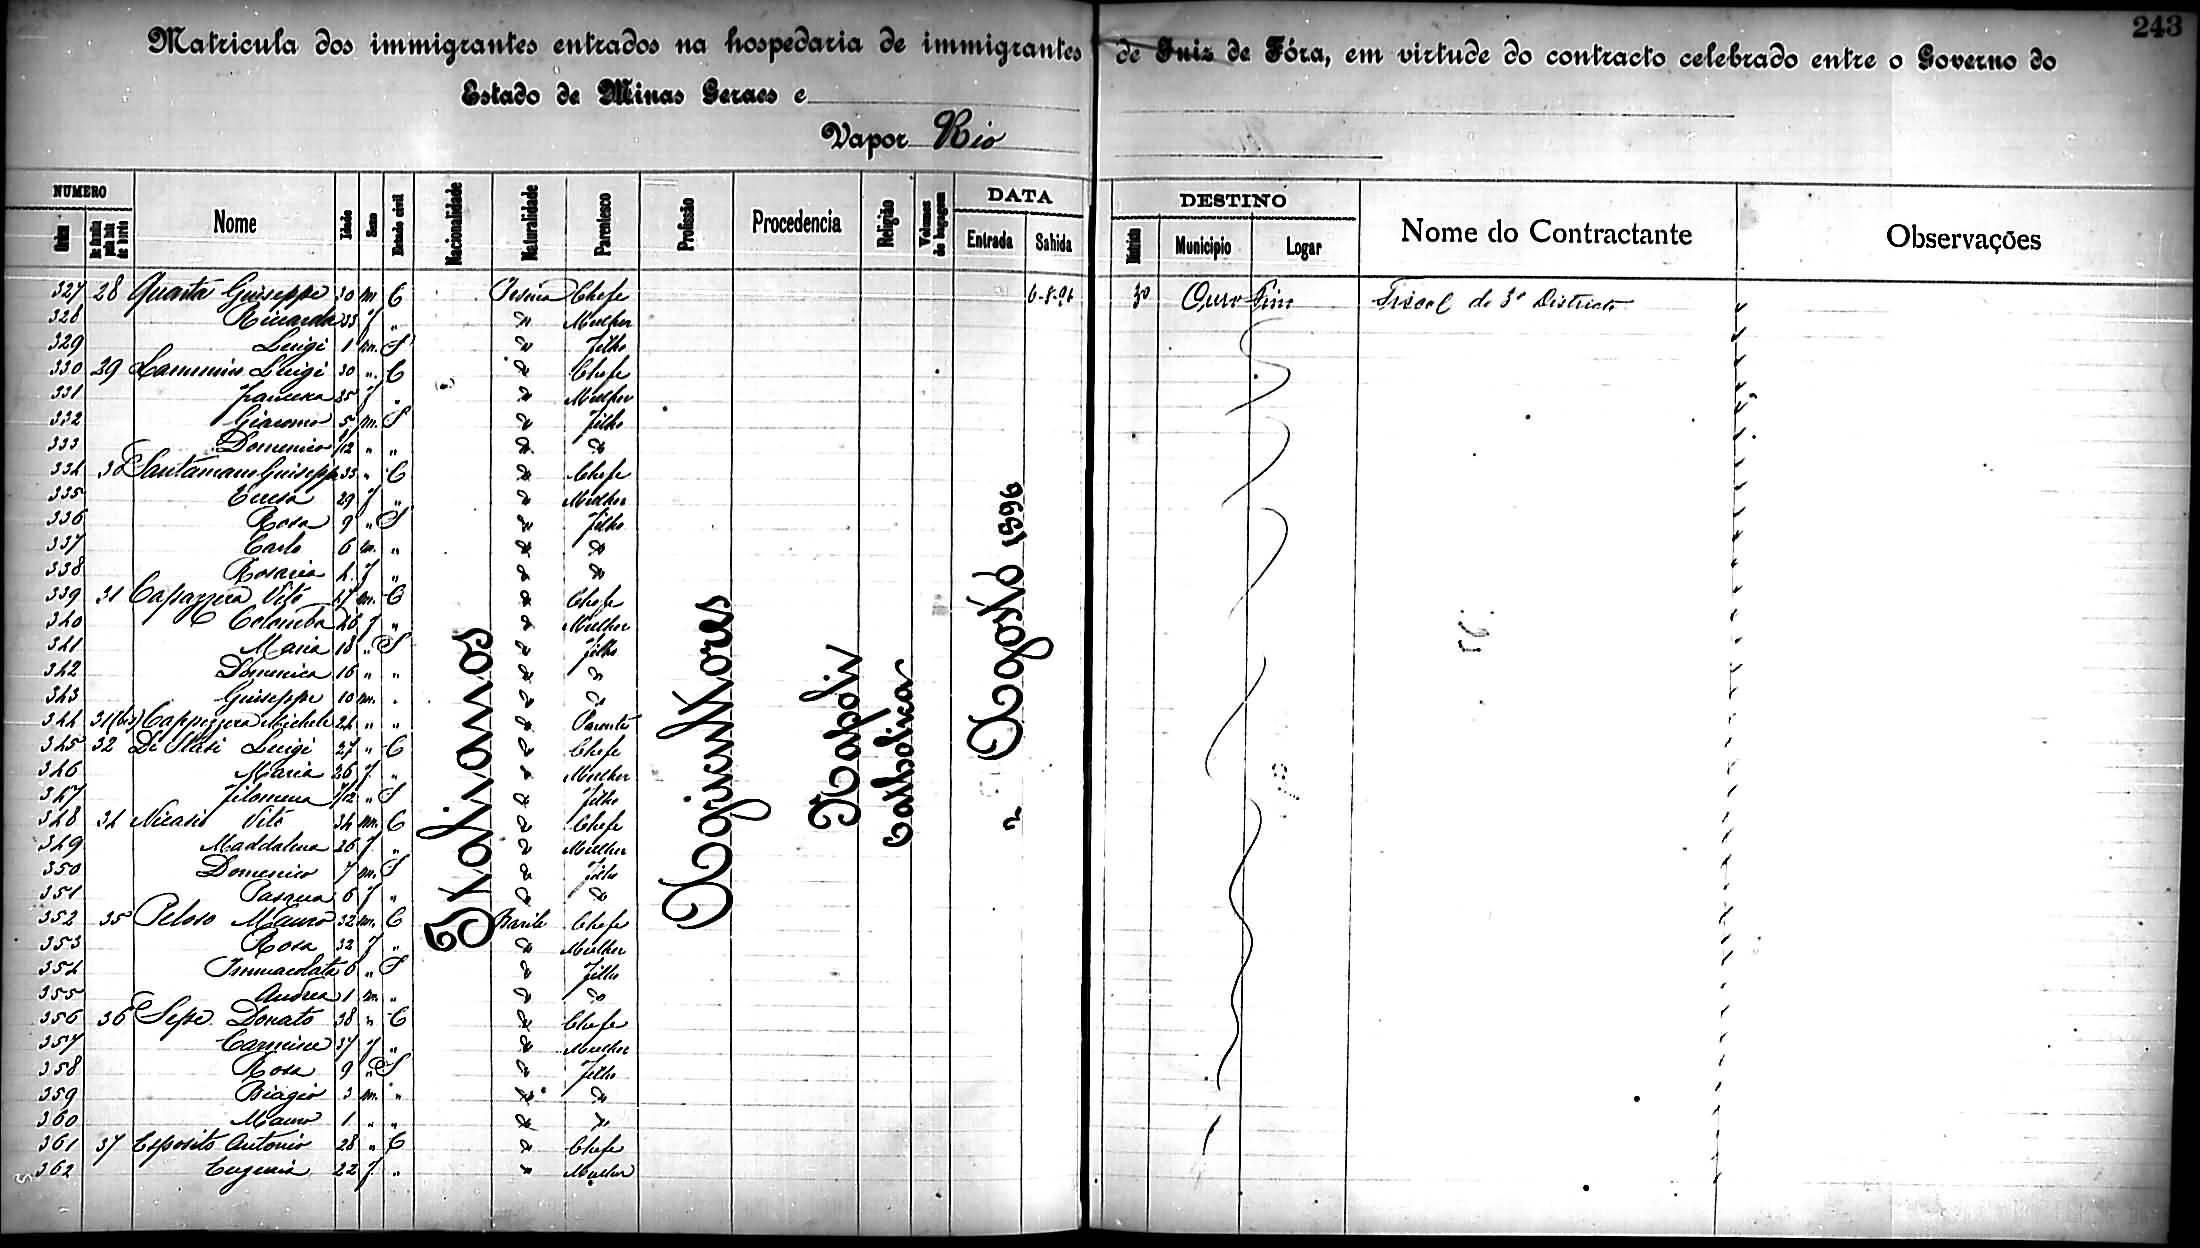 243
Matricula dos immigrantes entrados na hospedaria de immigrantes de Juiz de Fóra, em virtude do contracto celebrado entre o Governo do
Estado de Minas Geraes e
Vapor Rio
NUMERO Nome Idade Sexo Estado civil Nacionalidade Naturalidade Parentesco Profissão Procedencia Religião Volumes de bagagem DATA DESTINO Nome do Contractante Observações
Ordem Entrada Sahida Districto Municipio Logar
327 28 Quarta Guiseppe 30 m C Chefe 6-8-96 3º Ouro Fino Fiscal do 3º Districto
328 Riccarda 33 f " " Mulher
329 Luigi 1 m. S " Filho
330 29 Luigi 30 " C " Chefe
331 25 f " " Mulher
332 Giacomo 5 m. S " Filho
333 Domenico /12 " " " "
334 30 Guisepp 33 " C " Chefe
335 Teresa 29 f " " Mulher
336 Rosa 9 " S " Filho
337 Carlo 6 m. " " "
338 Rosaria 4 f " " "
339 31 Capazzera Vito 47 m. C " Chefe
340 Colomba 46 f " " Mulher
341 Maria 18 " S " Filho
342 Domenica 16 " " " "
343 Guiseppe 10 m. " " "
344 31(bis) Cappezzera Michele 24 " " " Parente
345 32 Di Stasi Luigi 27 " C " Chefe
346 Maria 26 f. " " Mulher
347 Filomena /12 " S " Filho
348 34 Vito 34 m. C " Chefe
349 Maddalena 26 f. " " Mulher
350 Domenico 7 m. S " Filho
351 6 f " " "
352 35 Peloso Mauro 32 m. C Barile Chefe
353 Rosa 32 f " " Mulher
354 Immacolata 6 " S " Filho
355 Andrea 1 m. " " "
356 36 Sepe Donato 38 " C " Chefe
357 37 f " " Mulher
358 Rosa 9 " S " Filho
359 Biagio 3 m. " " "
360 Mauro 1 " " " "
361 37 Esposito Antonio 28 " C " Chefe
362 Eugenia 22 f. " " Mulher
Italianos
Agricultores
Napoli
Catholica
2 Agosto 1896